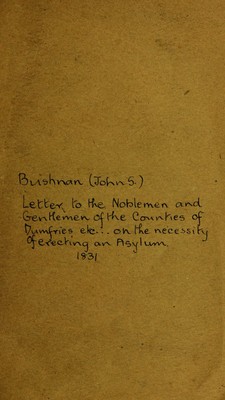 Bushnan (John S.)
Letter to the Noblemen and
Gentlemen of the Counties of
Dumfries etc... on the necessity
of erecting an Asylum
1831